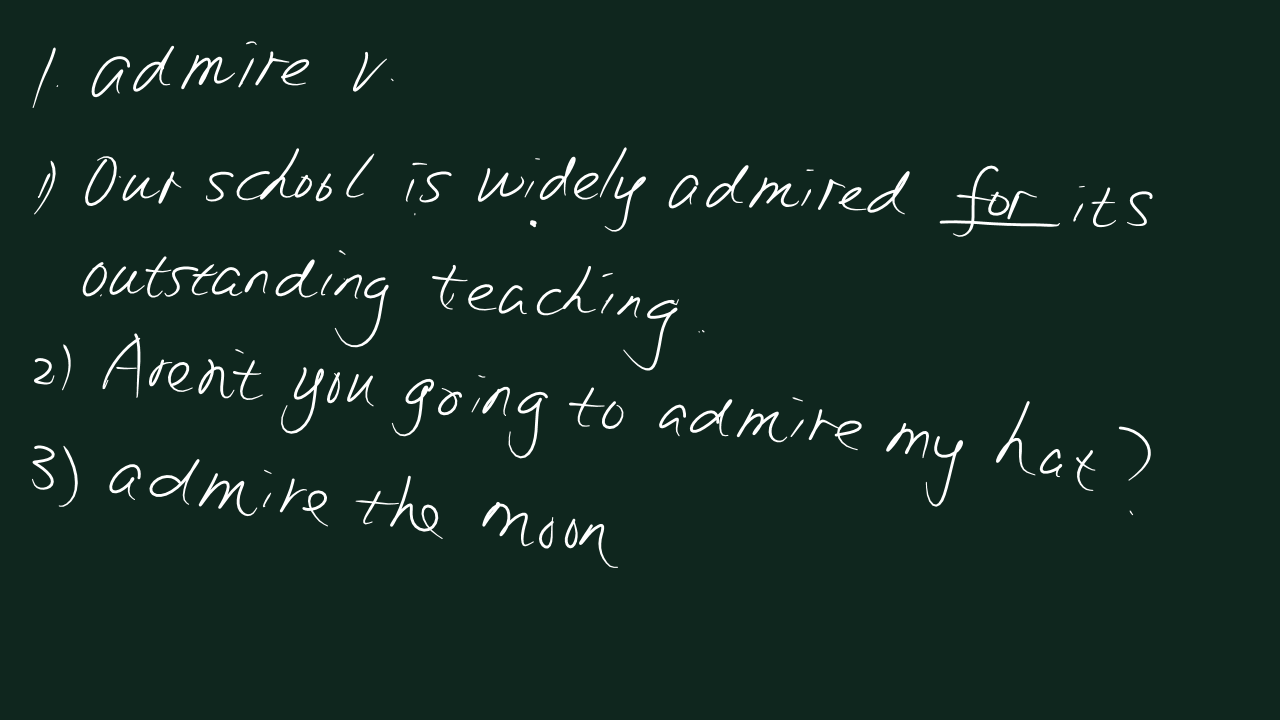 1. admire v.
1) Our school is widely admired for its
outstanding teaching.
2) Aren't you going to admire my hat?
3) admire the moon